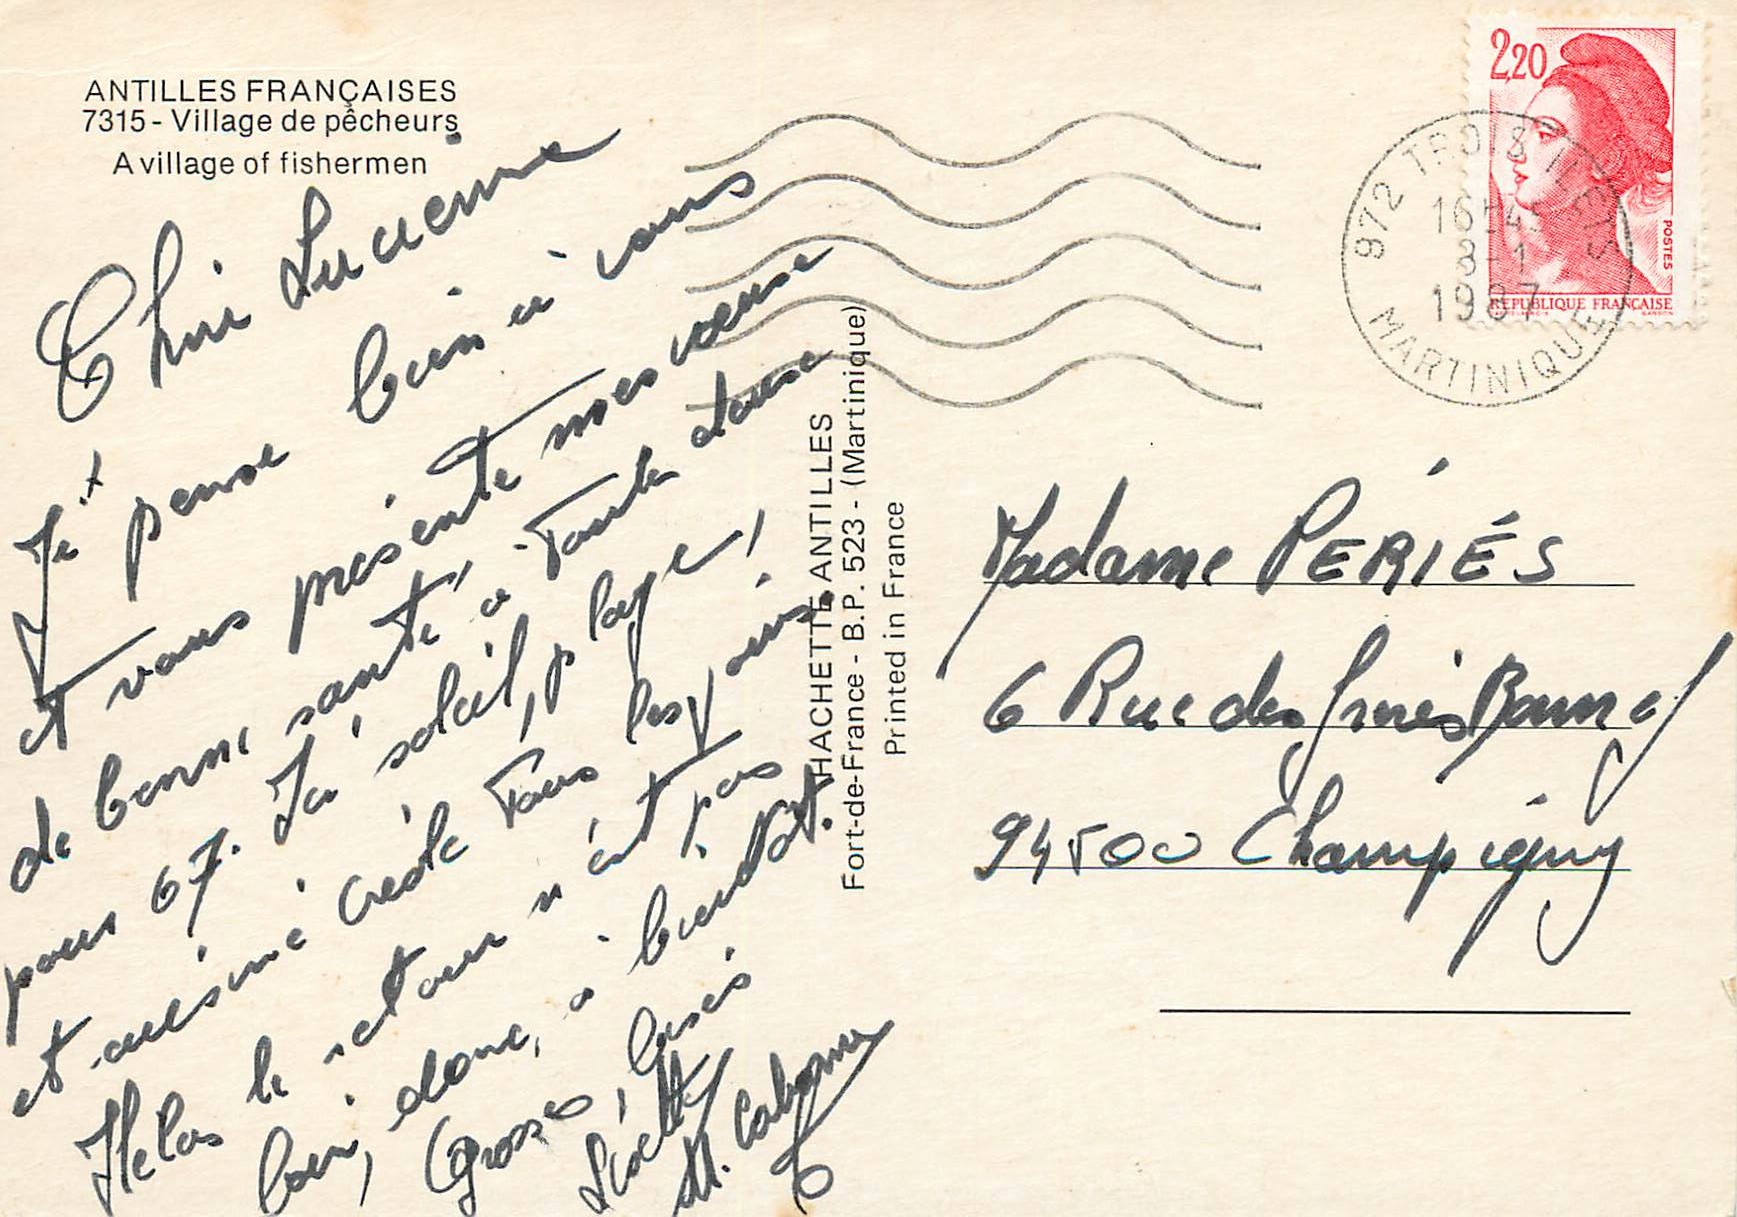 ANTILLES FRANÇAISES
7315 - Village de pêcheurs
A village of fishermen
Chère Lucienne
Je pense bien à vous
et vous présente mes vœux
de bonne santé, à Toute
pour 87. Ici soleil, plage,
et cuisine créole Tous les jours.
Hélas le retour n'est pas
loin, donc, à bientôt.
Grosses bises
M.
HACHETTE ANTILLES
Fort-de-France - B.P. 523 - (Martinique)
Printed in France
2,20
POSTES
REPUBLIQUE FRANÇAISE
GANDON
972 TROIS ILETS
16H45
8-1
1987
MARTINIQUE
Madame PERIÉS
6 Rue des frères
94500 Champigny